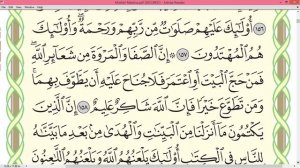 أُو۟لَـٰٓئِكَ عَلَيْهِمْ صَلَوَٰتٌ مِّن رَّبِّهِمْ وَرَحْمَةٌ ۖ وَأُو۟لَـٰٓئِكَ
هُمُ ٱلْمُهْتَدُونَ ١٥٧ ۞ إِنَّ ٱلصَّفَا وَٱلْمَرْوَةَ مِن شَعَآئِرِ ٱللَّهِ ۖ
فَمَنْ حَجَّ ٱلْبَيْتَ أَوِ ٱعْتَمَرَ فَلَا جُنَاحَ عَلَيْهِ أَن يَطَّوَّفَ بِهِمَا ۚ
وَمَن تَطَوَّعَ خَيْرًا فَإِنَّ ٱللَّهَ شَاكِرٌ عَلِيمٌ ١٥٨ إِنَّ ٱلَّذِينَ
يَكْتُمُونَ مَآ أَنزَلْنَا مِنَ ٱلْبَيِّنَـٰتِ وَٱلْهُدَىٰ مِنۢ بَعْدِ مَا بَيَّنَّـٰهُ
لِلنَّاسِ فِى ٱلْكِتَـٰبِ ۙ أُو۟لَـٰٓئِكَ يَلْعَنُهُمُ ٱللَّهُ وَيَلْعَنُهُمُ ٱللَّـٰعِنُونَ